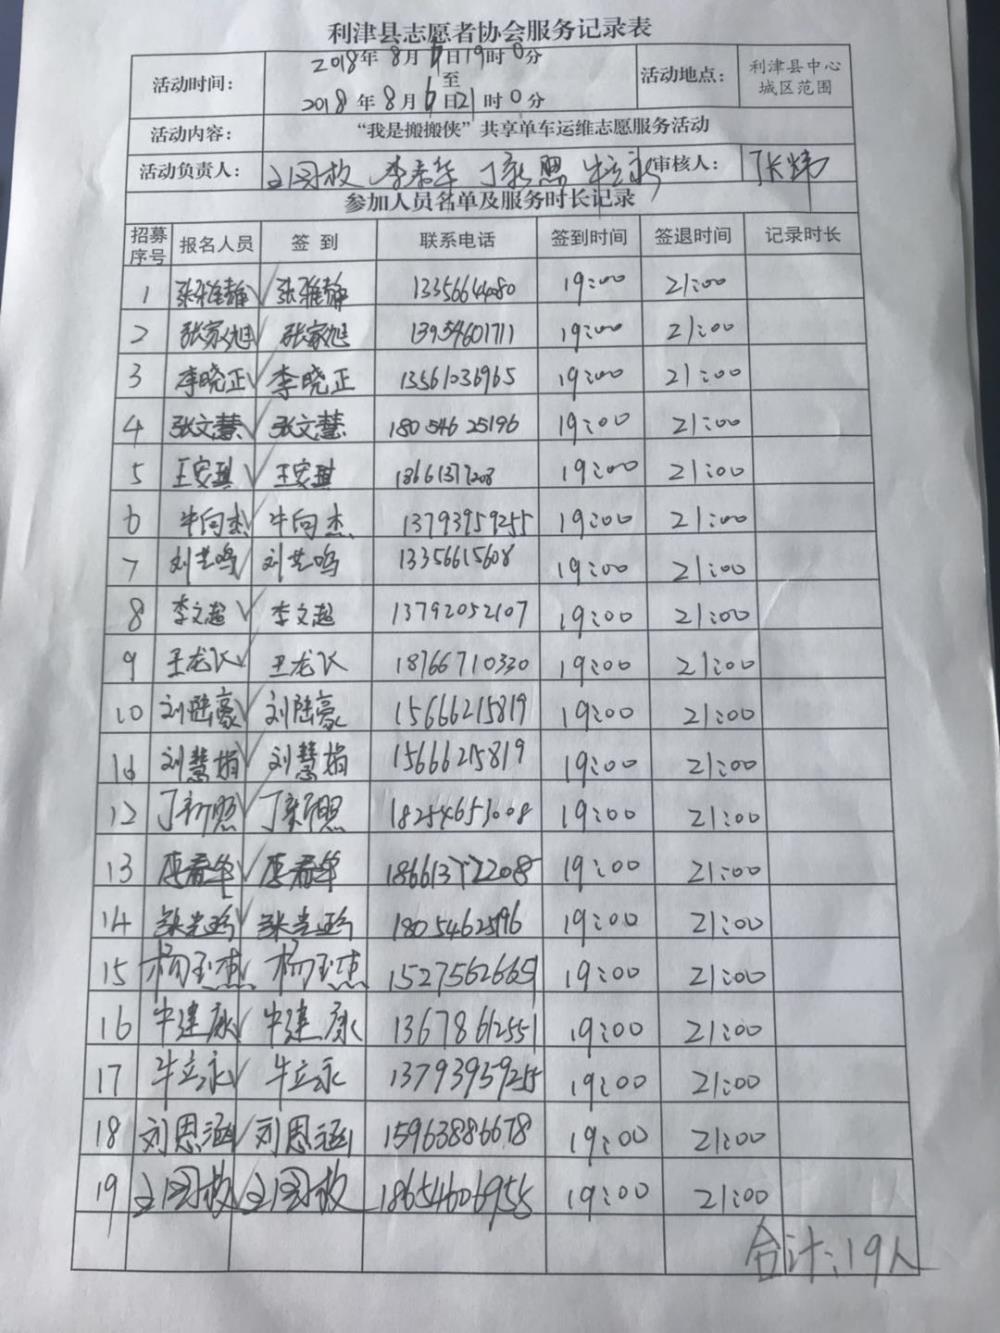 利津县志愿者协会服务记录表
活动时间： 2018年8月 日19时0分 至 2018年8月 日21时0分 活动地点： 利津县中心城区范围
活动内容： “我是搬搬侠”共享单车运维志愿服务活动
活动负责人： 王国枚 李春华 丁新照 牛立永 审核人： 张炜
参加人员名单及服务时长记录
招募序号 报名人员 签到 联系电话 签到时间 签退时间 记录时长
1 张雅静 √ 张雅静 13356644080 19:00 21:00
2 张家旭 √ 张家旭 13954601711 19:00 21:00
3 李晓正 √ 李晓正 13561036965 19:00 21:00
4 张文慧 √ 张文慧 18054625196 19:00 21:00
5 王安琪 √ 王安琪 18661377208 19:00 21:00
6 牛向杰 √ 牛向杰 13793959255 19:00 21:00
7 刘艺鸣 √ 刘艺鸣 13356615608 19:00 21:00
8 李文超 √ 李文超 13792052107 19:00 21:00
9 王龙飞 √ 王龙飞 18766710330 19:00 21:00
10 刘陆豪 √ 刘陆豪 15666215819 19:00 21:00
11 刘慧娟 √ 刘慧娟 15666215819 19:00 21:00
12 丁新照 √ 丁新照 18254653008 19:00 21:00
13 李春华 √ 李春华 18661377208 19:00 21:00
14 √ 19:00 21:00
15 杨玉杰 √ 杨玉杰 15275626651 19:00 21:00
16 牛建康 √ 牛建康 13678612551 19:00 21:00
17 牛立永 √ 牛立永 13793959255 19:00 21:00
18 刘恩涵 √ 刘恩涵 15963886678 19:00 21:00
19 王国枚 √ 王国枚 18654606955 19:00 21:00
合计：19人